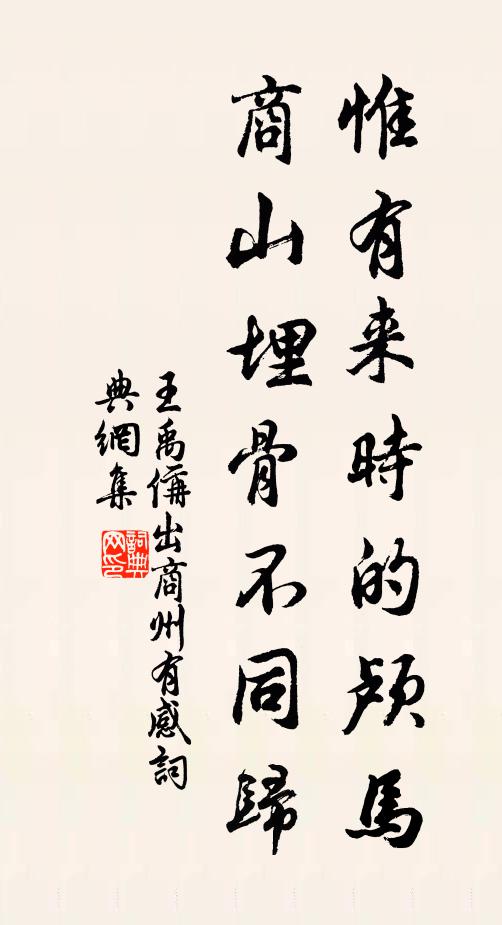 惟有来時的颅馬
商山埋骨不同歸
王禹偁出商州有感詞
典網集
詞典网印